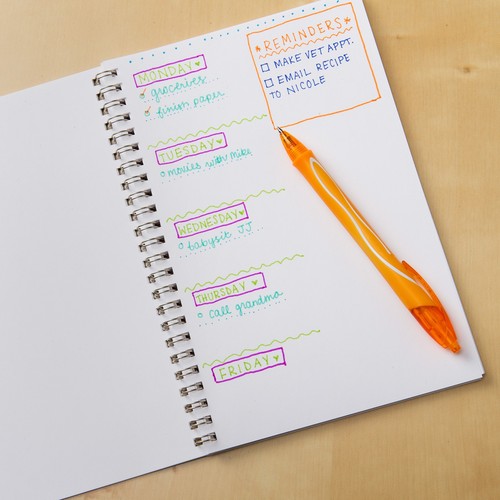 MONDAY
groceries
finish paper
TUESDAY
movies with mike
WEDNESDAY
babysit JJ
THURSDAY
call grandma
FRIDAY
REMINDERS
MAKE VET APPT.
EMAIL RECIPE
TO NICOLE